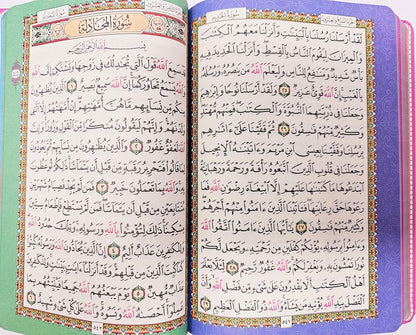 سُورَةُ الحَدِيدِ
لَقَدْ أَرْسَلْنَا رُسُلَنَا بِالْبَيِّنَٰتِ وَأَنزَلْنَا مَعَهُمُ الْكِتَٰبَ
وَالْمِيزَانَ لِيَقُومَ النَّاسُ بِالْقِسْطِ وَأَنزَلْنَا الْحَدِيدَ فِيهِ
بَأْسٌ شَدِيدٌ وَمَنَٰفِعُ لِلنَّاسِ وَلِيَعْلَمَ اللَّهُ مَن يَنصُرُهُۥ وَرُسُلَهُۥ
بِالْغَيْبِ إِنَّ اللَّهَ قَوِيٌّ عَزِيزٌ ٢٥ وَلَقَدْ أَرْسَلْنَا نُوحًا وَإِبْرَٰهِيمَ
وَجَعَلْنَا فِي ذُرِّيَّتِهِمَا النُّبُوَّةَ وَالْكِتَٰبَ فَمِنْهُم مُّهْتَدٍ
وَكَثِيرٌ مِّنْهُمْ فَٰسِقُونَ ٢٦ ثُمَّ قَفَّيْنَا عَلَىٰ ءَاثَٰرِهِم
بِرُسُلِنَا وَقَفَّيْنَا بِعِيسَى ابْنِ مَرْيَمَ وَءَاتَيْنَٰهُ الْإِنجِيلَ
وَجَعَلْنَا فِي قُلُوبِ الَّذِينَ اتَّبَعُوهُ رَأْفَةً وَرَحْمَةً وَرَهْبَانِيَّةً
ابْتَدَعُوهَا مَا كَتَبْنَٰهَا عَلَيْهِمْ إِلَّا ابْتِغَاءَ رِضْوَٰنِ اللَّهِ فَمَا
رَعَوْهَا حَقَّ رِعَايَتِهَا فَـَٔاتَيْنَا الَّذِينَ ءَامَنُوا مِنْهُمْ أَجْرَهُمْ
وَكَثِيرٌ مِّنْهُمْ فَٰسِقُونَ ٢٧ يَٰأَيُّهَا الَّذِينَ ءَامَنُوا اتَّقُوا اللَّهَ
وَءَامِنُوا بِرَسُولِهِۦ يُؤْتِكُمْ كِفْلَيْنِ مِن رَّحْمَتِهِۦ وَيَجْعَل لَّكُمْ
نُورًا تَمْشُونَ بِهِۦ وَيَغْفِرْ لَكُمْ وَاللَّهُ غَفُورٌ رَّحِيمٌ ٢٨ لِّئَلَّا يَعْلَمَ
أَهْلُ الْكِتَٰبِ أَلَّا يَقْدِرُونَ عَلَىٰ شَيْءٍ مِّن فَضْلِ اللَّهِ وَأَنَّ
الْفَضْلَ بِيَدِ اللَّهِ يُؤْتِيهِ مَن يَشَاءُ وَاللَّهُ ذُو الْفَضْلِ الْعَظِيمِ ٢٩
٥٤١
سُورَةُ المُجَادلةِ
بِسْمِ اللَّهِ الرَّحْمَٰنِ الرَّحِيمِ
قَدْ سَمِعَ اللَّهُ قَوْلَ الَّتِي تُجَٰدِلُكَ فِي زَوْجِهَا وَتَشْتَكِي إِلَى اللَّهِ
وَاللَّهُ يَسْمَعُ تَحَاوُرَكُمَا إِنَّ اللَّهَ سَمِيعٌ بَصِيرٌ ١ الَّذِينَ يُظَٰهِرُونَ
مِنكُم مِّن نِّسَائِهِم مَّا هُنَّ أُمَّهَٰتِهِمْ إِنْ أُمَّهَٰتُهُمْ إِلَّا الَّٰـِٔي
وَلَدْنَهُمْ وَإِنَّهُمْ لَيَقُولُونَ مُنكَرًا مِّنَ الْقَوْلِ وَزُورًا وَإِنَّ اللَّهَ
لَعَفُوٌّ غَفُورٌ ٢ وَالَّذِينَ يُظَٰهِرُونَ مِن نِّسَائِهِمْ ثُمَّ يَعُودُونَ
لِمَا قَالُوا فَتَحْرِيرُ رَقَبَةٍ مِّن قَبْلِ أَن يَتَمَاسَّا ذَٰلِكُمْ تُوعَظُونَ
بِهِۦ وَاللَّهُ بِمَا تَعْمَلُونَ خَبِيرٌ ٣ فَمَن لَّمْ يَجِدْ فَصِيَامُ شَهْرَيْنِ
مُتَتَابِعَيْنِ مِن قَبْلِ أَن يَتَمَاسَّا فَمَن لَّمْ يَسْتَطِعْ فَإِطْعَامُ سِتِّينَ
مِسْكِينًا ذَٰلِكَ لِتُؤْمِنُوا بِاللَّهِ وَرَسُولِهِۦ وَتِلْكَ حُدُودُ اللَّهِ
وَلِلْكَٰفِرِينَ عَذَابٌ أَلِيمٌ ٤ إِنَّ الَّذِينَ يُحَادُّونَ اللَّهَ وَرَسُولَهُۥ
كُبِتُوا كَمَا كُبِتَ الَّذِينَ مِن قَبْلِهِمْ وَقَدْ أَنزَلْنَا ءَايَٰتٍ بَيِّنَٰتٍ
وَلِلْكَٰفِرِينَ عَذَابٌ مُّهِينٌ ٥ يَوْمَ يَبْعَثُهُمُ اللَّهُ جَمِيعًا فَيُنَبِّئُهُم
بِمَا عَمِلُوا أَحْصَىٰهُ اللَّهُ وَنَسُوهُ وَاللَّهُ عَلَىٰ كُلِّ شَيْءٍ شَهِيدٌ ٦
٥٤٢